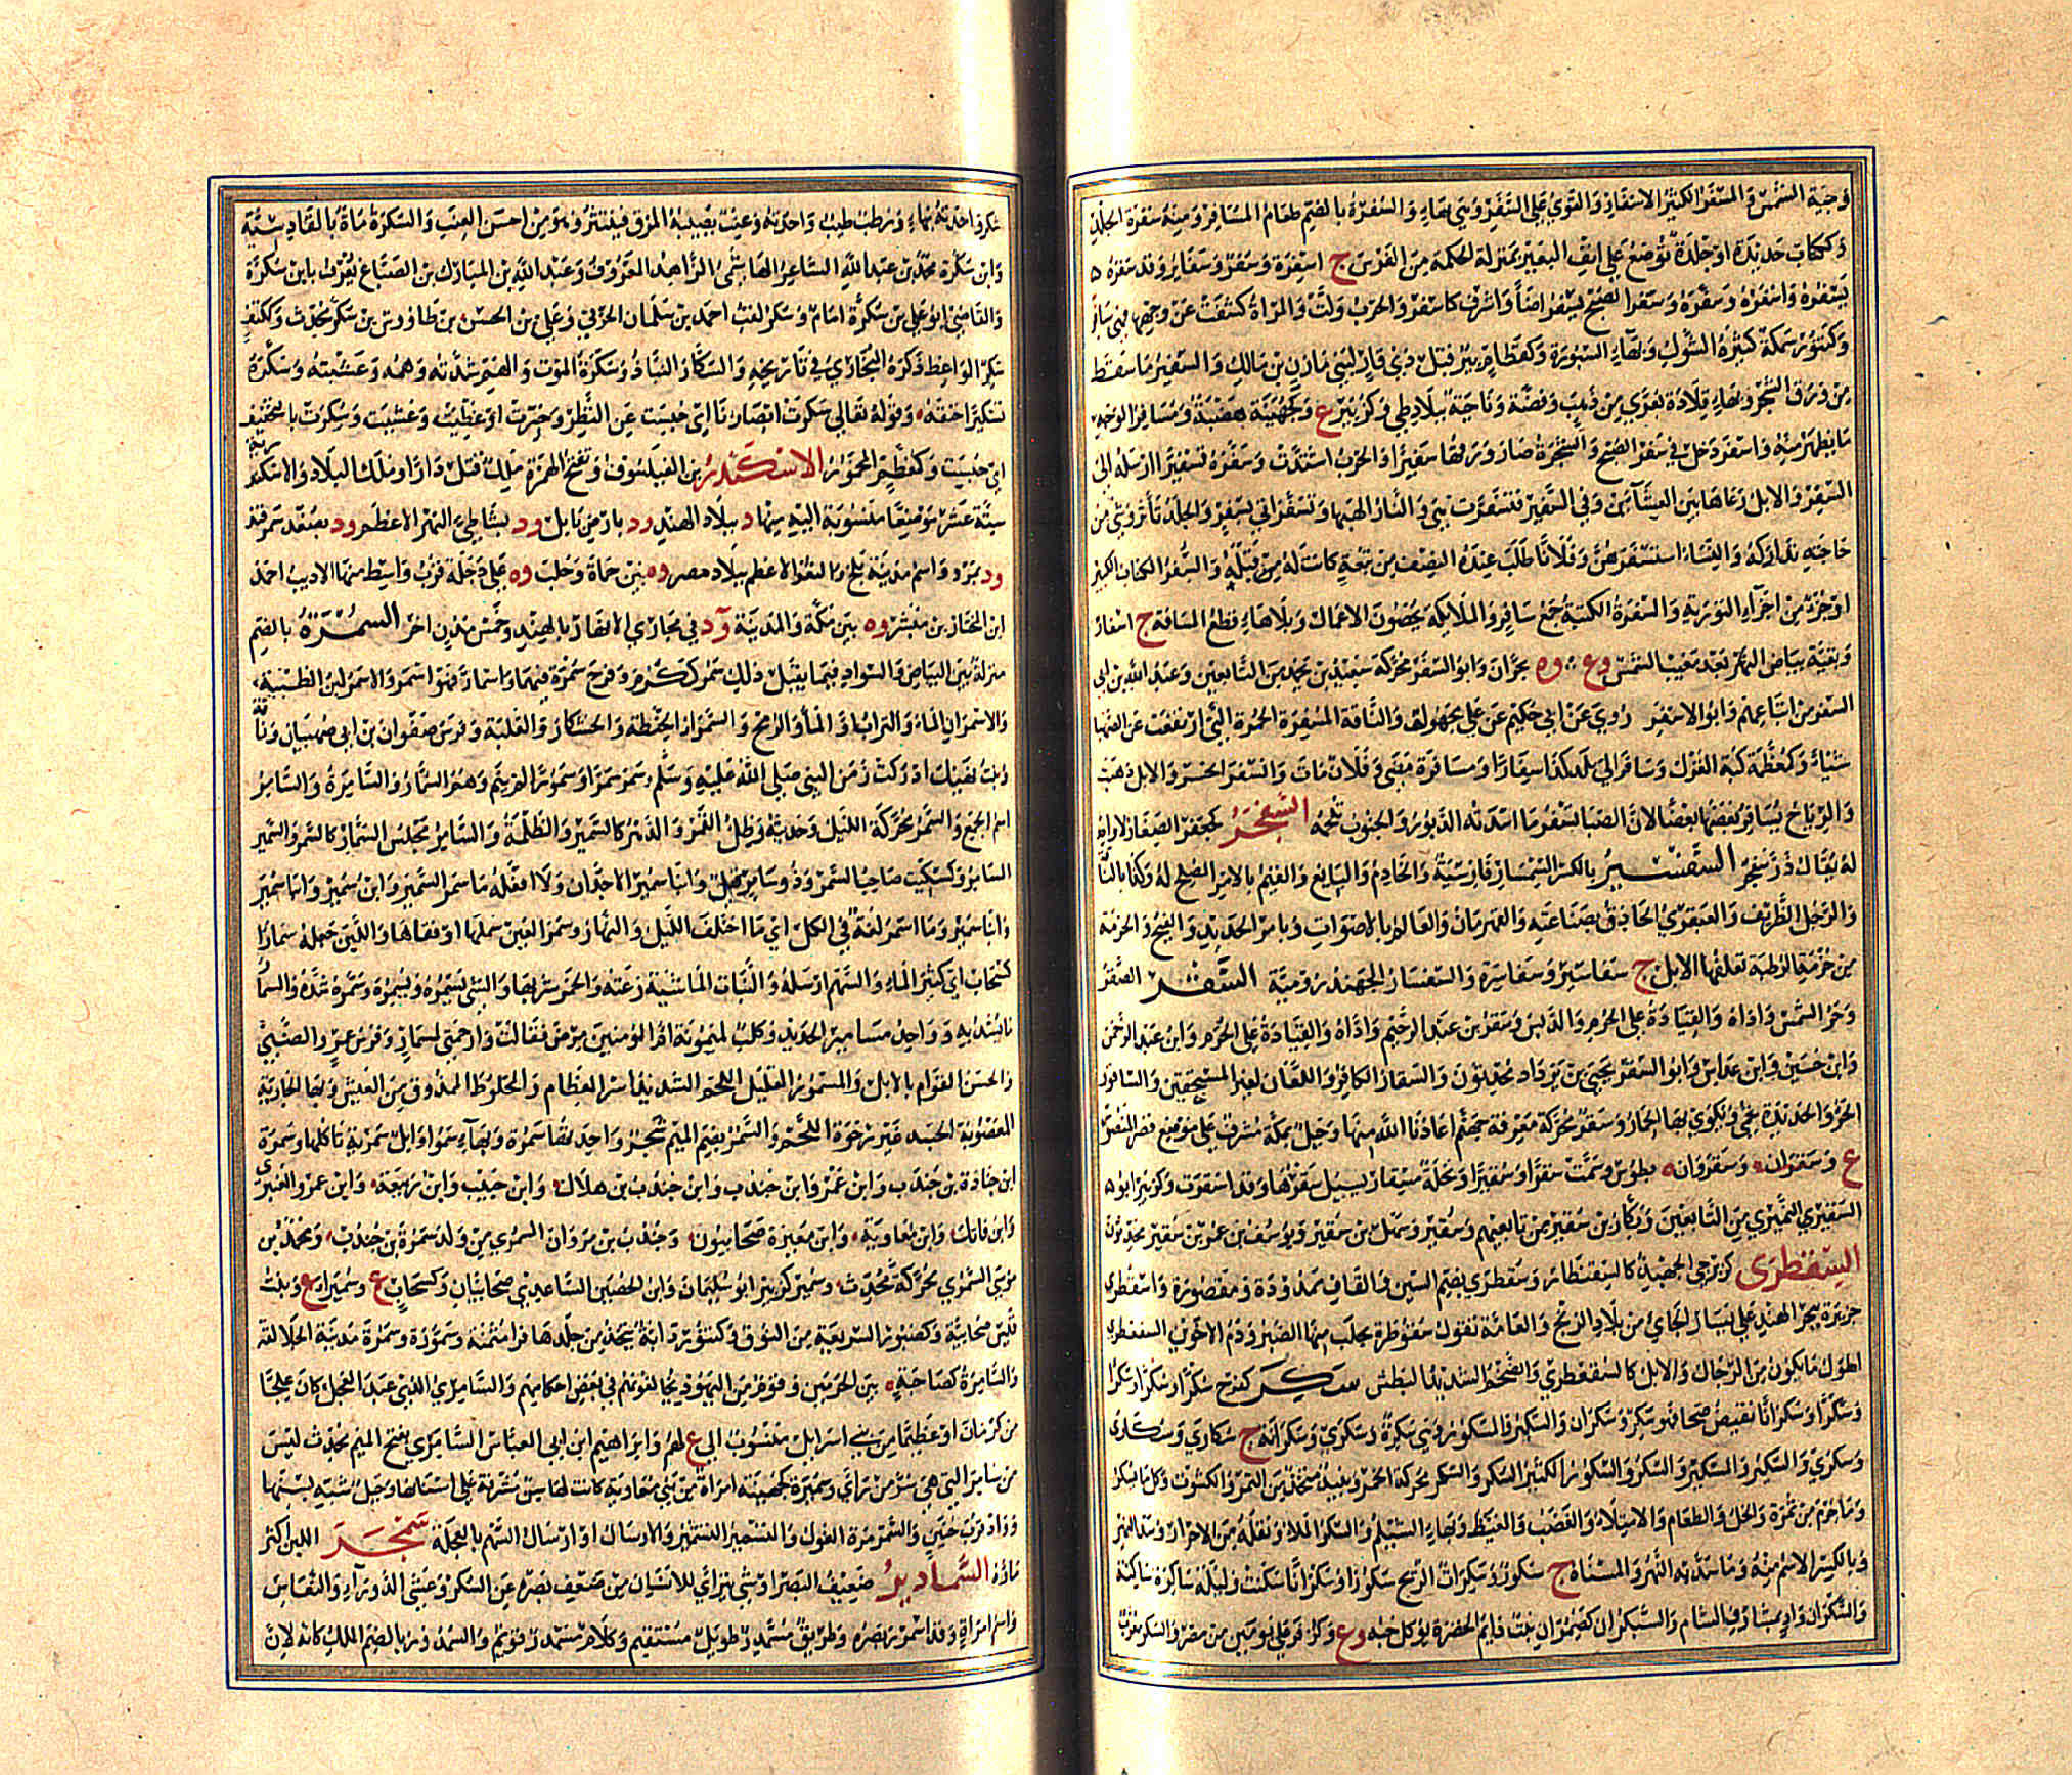 وجبة الشمس والمسفر الكثير الاسفار والقوي على السفر وهي بهاء والسفرة بالضم طعام المسافر ومنه سفرة الجلد
وككتاب حديدة او جلدة توضع على انف البعير بمنزلة الحكمة من الفرس ج اسفرة وسفر وسفاير وقد سفره
يسفره واسفره وسفره وسفر الصبح يسفر اضاء واشرق كاسفر والحرب ولت والمراة كشفت عن وجهها فهي سافر
وكتنور سمكة كثيرة الشوك وبهاء السبورة وكقطام بير قبل ذي قار لبني مازن بن مالك والسفير ما سقط
من ورق الشجر وبهاء قلادة بعرى من ذهب وفضة وناحية ببلاد طي وكزبير ع وكجهينة هضبة ومسافر الوجه
ما يظهر منه واسفر دخل في سفر الصبح والشجرة صار ورقها سفيرا والحرب اشتدت وسفره تسفيرا ارسله الى
السفر والابل رعاها بين العشآئين وفي السفير فتسفرت هي والنار الهبها وتسفر اتى بسفر والجلد تأثر وشيء من
حاجته تداركه والنساء استسفرهن وفلانا طلب عنده النصف من تبعة كانت له من قبله والسفر الكتاب الكبير
او جزء من اجزآء التورية والسفرة الكتبة جمع سافر والملايكه يحصون الاعمال وبلا هاء قطع المسافة ج اسفار
وبقية بياض النهار بعد مغيب الشمس وع وه بحران وابو السفر محركة سعيد بن يحمد من التابعين وعبد الله بن ابي
السفر من اتباعهم وابو الاسفر روي عن ابن حكيم عن علي مجهول والناقة المسفرة الحمرة التي ارتفعت عن الصهباء
شياء وكمعظمة كبة الغزل وسافر الى بلد كذا سفارا ومسافرة مضى وفلان مات وانسفر انحسر والابل ذهبت
والرياح يسافر بعضها بعضا لان الصبا تسفر ما اسدته الدبور والجنوب تلحمه السغجر كجعفر الصغار لا واحد
له يقال ذر سفجر السفسير بالكسر السمسار فارسية والخادم والتابع والقيم بالامر المصلح له وكذا بالناقة
والرجل الظريف والعبقري الحاذق بصناعته والقهرمان والعالم بالاصوات وبامر الحديد والفيج والحزمة
من حزم الرطبة تعلفها الابل ج سفاسير وسفاسرة والسفسار الجهبذ رومية السقر الصقر
وحر الشمس واذاه والقيادة على الحرم والدبس وسقر بن عبد الرحيم واذاه والقيادة على الحرم وابن عبد الرحمن
وابن حسين وابن عداس وابو السقر يحيى بن يزداد محدثون والسقار الكافر واللعان لغير المستحقين والساقور
الحر والحديدة تحمى ويكوى بها الحمار وسقر محركة معرفة جهنم اعاذنا الله منها وجبل بمكة مشرف على موضع قصر المنصور
ع وسقران وسقروان بطوس وسمت سقرا وسقيرا ونخلة مسقار يسيل سقرها وقد اسقرت وكزبير ابو
السقير النميري من التابعين وبكار بن سقير من تابعيهم وسقير وسمك بن سقير ويوسف بن عمر بن سقير محدثون
السقطرى كزبرجي الجهبذ كالسقنطار وسقطرى بضم السين والقاف ممدودة ومقصورة واسقطرى
جزيرة ببحر الهند على يسار الجاي من بلاد الزنج والعامة تقول سقوطرة يجلب منها الصبر ودم الاخوين السقعطري
اطول ما يكون من الرجال والابل كالسقعطري والضخم الشديد البطش سكر كفرح سكرا وسكرا وسكرا
وسكرا وسكرانا نقيض صحا فهو سكر وسكران والسكير والسكور وهي سكرة وسكرى وسكرانه ج سكارى وسكارى
وسكرى والسكير والسكير والسكر والسكور الكثير السكر والسكر محركة الخمر ونبيذ يتخذ من التمر والكشوث وكل ما يسكر
وما حرم من ثمرة والخل والطعام والامتلاء والغضب والغيظ وبهاء الشيلم والسكر الملا ونقله من الاحرار وسد النهر
وبالكسر الاسم منه وما سد به النهر والمسناة ج سكور وسكرت الريح سكورا وسكرانا سكنت وليلة ساكرة ساكنة
والسكران واد بمشارف الشام والسيكران كضيمران نبت دايم الخضرة يوكل حبه وع وكزفر ع على يومين من مصر والسكر معرب
شكر واحدته بهاء ورطب طيب واحدته وعنب يصيبه المرق فينتثر وهو من احسن العنب والسكرة ماة بالقادسية
وابن سكرة محمد بن عبد الله الشاعر الهاشمي الزاهد المعروف وعبد الله بن المبارك بن الصباغ يعرف بابن سكرة
والقاضي ابو علي بن سكرة امام وسكر لقب احمد بن سلمان الحربي وعلي بن الحسن بن طاووس بن سكر محدث وككتف
سكر الواعظ ذكره البخاري في تاريخه والسكار النباذ وسكرة الموت والهم شدته وهمه وغشيته وسكره
تسكيرا خنقه وقوله تعالى سكرت ابصارنا اي حبست عن النظر وحيرت او غطيت وغشيت وسكرت بالتخفيف
اي حبست وكمعظم المخمور الاسكندر بن الفيلسوف وتفتح الهمزة ملك قتل دارا وملك البلاد والاسكندرية
ستة عشر موضعا منسوبة اليه منها د ببلاد الهند ود بارض بابل ود بشاطئ النهر الاعظم ود بصغد سمرقند
ود بمرو واسم مدينة بلخ والثغر الاعظم ببلاد مصر وه بين حماة وحلب وه على دجلة قرب واسط منها الاديب احمد
ابن المختار بن مبشر وه بين مكة والمدينة ود في مجاري الانهار بالهند وخمس مدن اخر السمرة بالضم
منزلة بين البياض والسواد فيما يقبل ذلك سمر ككرم وفرح سمرة فيهما واسمار فهو اسمر والاسمر لبن الظبية
والاسمران الماء والبر او الماء والرمح والسمراء الحنطة والخشكار والعلبة وفرس صفوان بن ابي صهبان وناقة
وبنت نهيك ادركت زمن النبي صلى الله عليه وسلم وسمر سمرا وسمورا لم ينم وهم السمار والسامرة والسامر
اسم الجمع والسمر محركة الليل وحديثه وظل القمر والدهر كالسمير والظلمة والسامر مجلس السمار كالسمر والسمير
السامر وكسكيت صاحب السمر وذو سامر قيل وابنا سمير الاجدان ولا افعله ما سمر السمير وابن سمير وابنا سمير
وابنا سمير وما اسمر لغة في الكل اي ما اختلف الليل والنهار وسمر العين سملها او فقاها واللبن جعله سمارا
كسحاب اي كثير الماء والسهم ارسله والنبات الماشية رعته والخمر شربها والشي يسمره ويسمره وسمره شده والسمار
ما يشد به وواحد مسامير الحديد وكلب لميمونة ام المومنين مرض فقالت وا رحمتي لمسمار وفرس عمرو الضبي
والحسن القوام بالابل والمسمور القليل اللحم الشديد اسر العظام والمخلوط الممذوق من العيش وبهاء الجارية
المعصوبة الجسد غير رخوة اللحم والسمر بضم الميم شجر واحدتها سمرة وبهاء سموا وابل سمرية تاكلها وسمرة
ابن جنادة بن جندب وابن عمرو وابن جندب وابن جندب بن هلال وابن حبيب وابن ربيعة وابن عمرو العنبري
وابن فاتك وابن معاوية وابن معيرة صحابيون وجندب بن مروان السمري من ولد سمرة بن جندب ومحمد بن
موسى السمري محركة محدث وسمير كزبير ابو سليمان وابن الحصين الساعدي صحابيان وكسحاب ع وسميراء ع وبنت
قيس صحابية وكصبور السريعة من النوق وكتنور دابة يتخذ من جلدها فراء مثمنة وسمورة وسمرة مدينة الجلالقة
والسامرة كصاحبة ه بين الحرمين وقوم من اليهود يخالفونهم في بعض احكامهم والسامري الذي عبد العجل كان علجا
من كرمان او عظيما من بني اسرايل منسوب الى ع لهم وابراهيم ابن ابي العباس السامري بفتح الميم محدث ليس
من سامرا التي هي سر من رأى وسميرة كجهينة امراة من بني معاوية كانت لها سن مشرفة على اسنانها وجبل شبه بسنها
وواد قرب حنين والسمرمرة الغول والتسمير التشمير والارسال او ارسال السهم بالعجلة سمجر اللبن اكثر
ماؤه السمادير ضعف البصر او شي يتراى للانسان من ضعف بصره عن السكر وغشي الدوار والنعاس
واسم امراة وقد اسمدر بصره وطريق مسمدر طويل مستقيم وكلام مسمدر قويم والسمدور بالضم الملك كانه لان